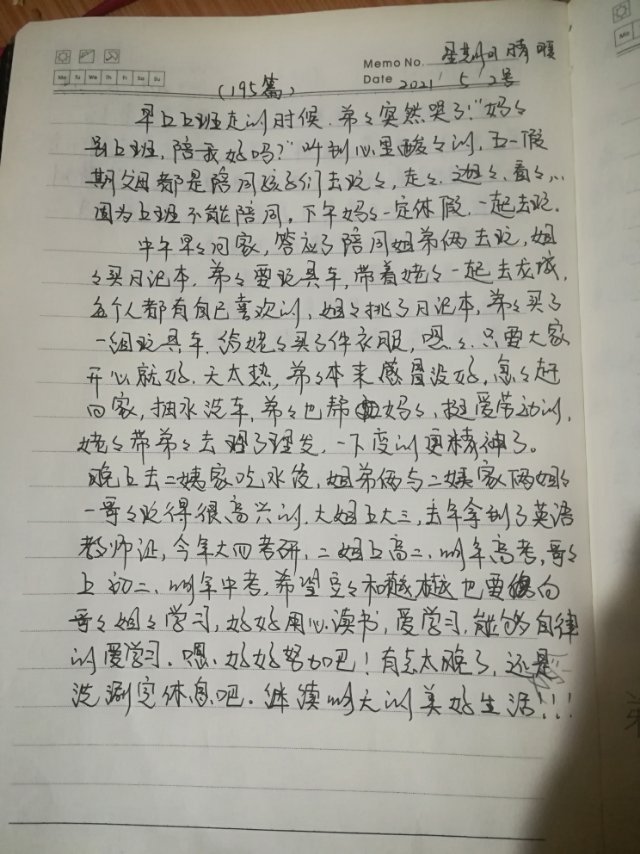 Memo No. 星期日 晴 暖
Mo Tu We Th Fr Sa Su
Date 2021 5 2号
(195篇)
早上上班走的时候,弟々突然哭了!"妈々
别上班,陪我好吗?"听到心里酸々的,五一假
期父母都是陪同孩子们去玩々,走々,逛々,看々…
因为上班不能陪同,下午妈々一定休假,一起去玩.
中午早々回家,答应了陪同姐弟俩去玩,姐
々买日记本,弟々要玩具车,带着姥々一起去龙城,
每个人都有自己喜欢的,姐々挑了日记本,弟々买了
一组玩具车,给姥々买了件衣服,嗯々,只要大家
开心就好.天太热,弟々本来感冒没好,急々赶
回家,抽水洗车,弟々也帮妈々,挺爱劳动的,
姥々带弟々去理了理发,一下变的更精神了。
晚上去二姨家吃水饺,姐弟俩与二姨家俩姐々
一哥々玩得很高兴的,大姐上大三,去年拿到了英语
教师证,今年大四考研,二姐上高二,明年高考,哥々
上初二,明年中考,希望豆々和越越也要向
哥々姐々学习,好好用心读书,爱学习,能够自律
的爱学习.嗯,好好努力吧!有点太晚了,还是
洗涮完休息吧.继续明天的美好生活!!!